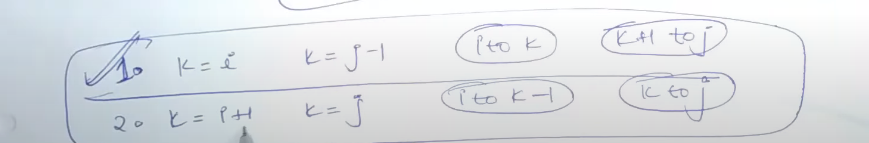 1. K = i K = j-1 i to K K+1 to j
2. K = i+1 K = j i to K-1 K to j